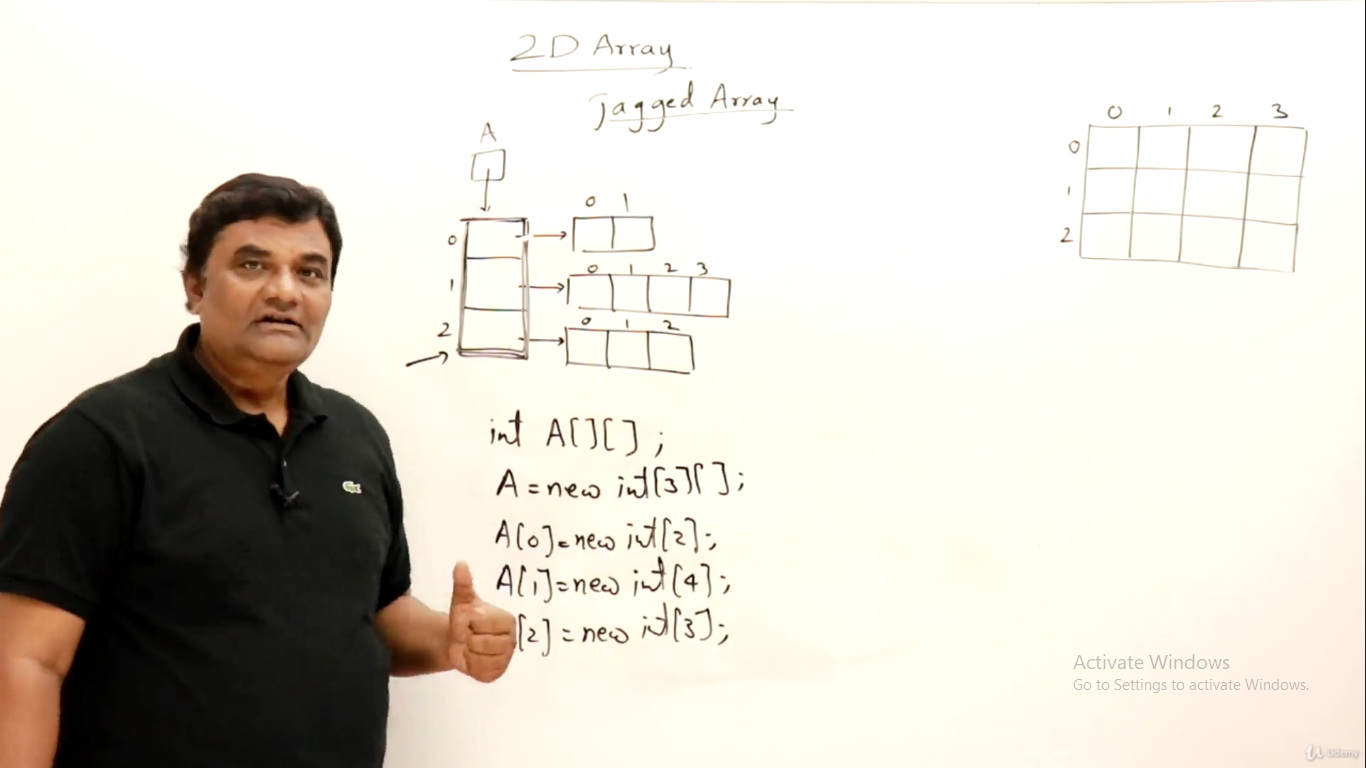 2D Array
Jagged Array
A
0 1
0
0 1 2 3
1
0 1 2
2
int A[][];
A=new int[3][];
A[0]=new int[2];
A[1]=new int[4];
[2]=new int[3];
0 1 2 3
0
1
2
Activate Windows
Go to Settings to activate Windows.
Udemy